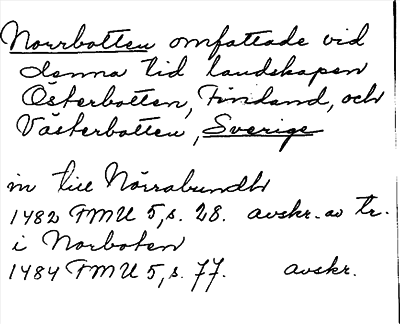 Norrbotten omfattade vid
denna tid landskapen
Österbotten, Finland, och
Västerbotten, Sverige
in till Norrabundh
1482 FMU 5, s. 28. avskr. av tr.
i Norboten
1484 FMU 5, s. 77. avskr.